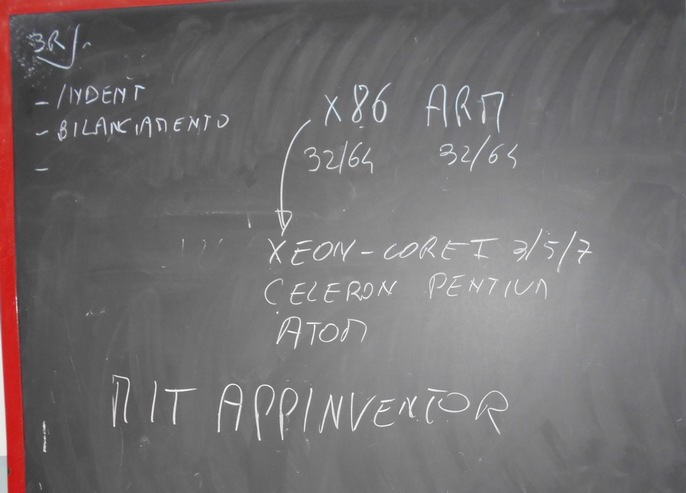 - INDENT
- BILANCIAMENTO
-
X86 ARM
32/64 32/64
XEON - CORE I 3/5/7
CELERON PENTIUM
ATOM
MIT APPINVENTOR